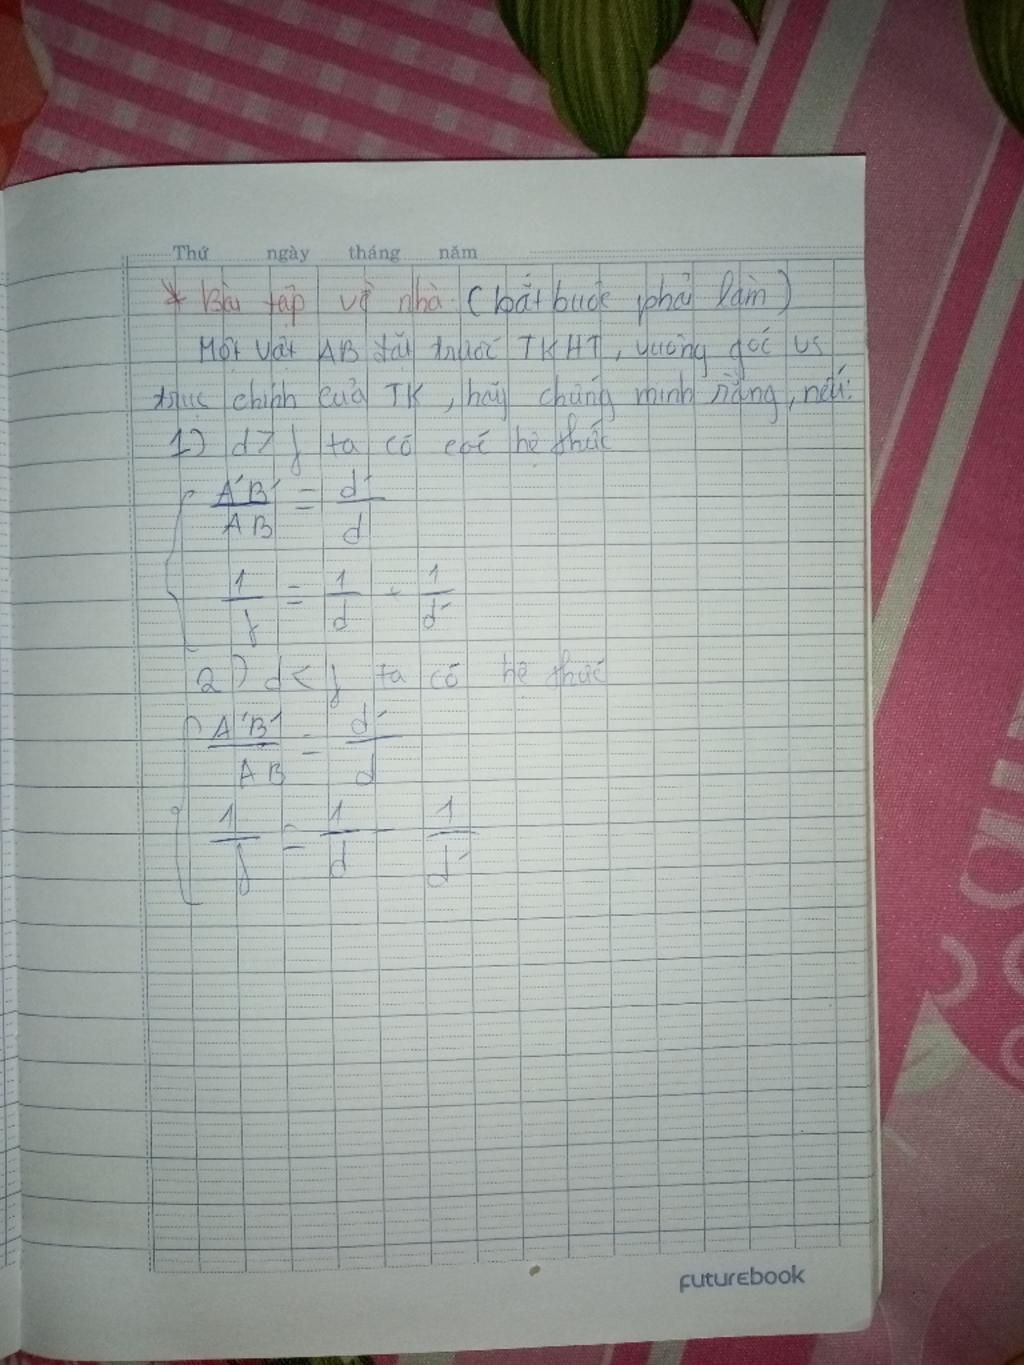 Thứ ngày tháng năm
* Bài tập về nhà (bắt buộc phải làm)
Một vật AB đặt trước TKHT, vuông góc vs
trục chính của TK, hãy chứng minh rằng, nếu:
1) d > f ta có các hệ thức
A'B'/AB = d'/d
1/f = 1/d + 1/d'
2) d < f ta có hệ thức
A'B'/AB = d'/d
1/f = 1/d - 1/d'
FUTUREBOOK